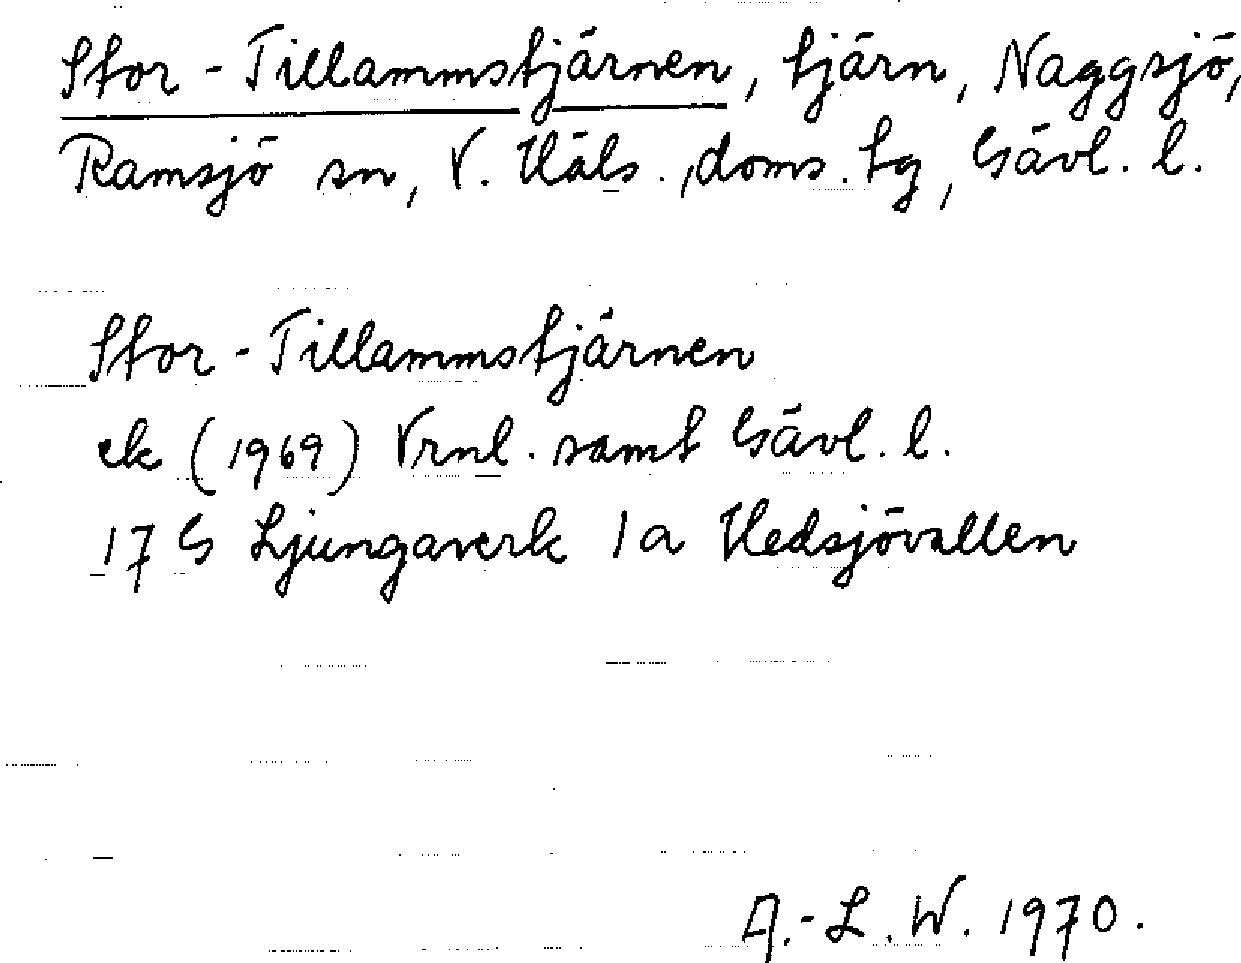 Stor-Tillammstjärnen, tjärn, Naggsjö,
Ramsjö sn, V. Häls. doms. tg, Gävl. l.
Stor-Tillammstjärnen
ek (1969) Vrnl. samt Gävl. l.
17 G Ljungaverk 1a Hedsjövallen
A.-L. W. 1970.